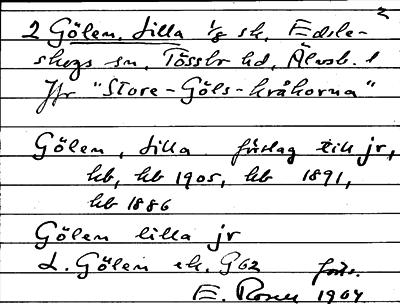 2
2 Gölen, Lilla 1/8 sk, Edsle-
skogs sn, Tössbo hd, Älvsb. l
Jfr "Store-Göls-kråkorna"
Gölen, Lilla förslag till jr,
hb, hb 1905, hb 1891,
hb 1886
Gölen lilla jr
L. Gölen ek. G62 forts.
E. Rosen 1964